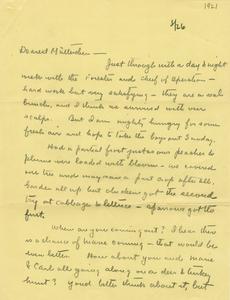 1921
3/26
Dearest Mütterchen —
Just through with a day & night
with the Forester and chief of operation —
hard work but very satisfying — they are a
bunch, and I think we survived with our
scalps. But I am mighty hungry for some
fresh air and hope to take the boys out Sunday.
Had a partial frost just as our peaches &
plums were loaded with bloom — we covered
one tree and may save a part crop after all.
Garden all up but chickens got the second
try at cabbage & lettuce — sparrows got the
first.
When are you coming out? I hear there
is a chance of Marie coming — that would be
even better. How about you and Marie
& Carl all going along on a deer & turkey
hunt? You'd better think about it, but